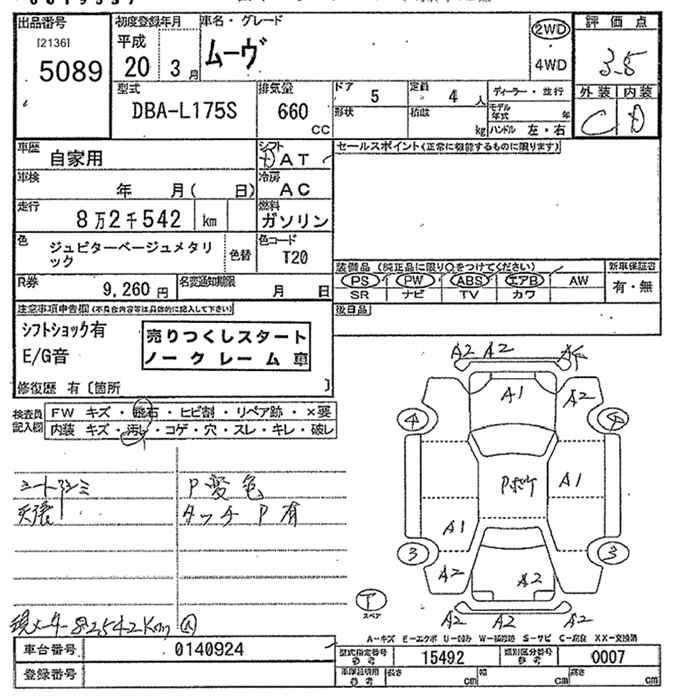 出品番号
[2136]
5089
初度登録年月
平成
20 3月
車名・グレード
ムーヴ
2WD
4WD
評価点
3.5
外装 内装
C D
型式
DBA-L175S
排気量
660
CC
ドア
5
定員
4 人
形状
積載
kg
ディーラー・並行
モデル年式 年
ハンドル 左・右
車歴
自家用
シフト
AT
車検
年 月( 日)
冷房
AC
走行
8万2千542 km
燃料
ガソリン
色
ジュピターベージュメタリック
色替
色コード
T20
R券
9,260 円
名変通知期限
月 日
セールスポイント(正常に機能するものに限ります)
装備品 (純正品に限り○をつけてください)
PS PW ABS エアB AW
SR ナビ TV カワ
新車保証書
有・無
後日品
注意事項申告欄(不具合内容等は具体的に記入して下さい)
シフトショック有
E/G音
売りつくしスタート
ノークレーム車
修復歴 有〔箇所 〕
検査員記入欄
FW キズ・飛石・ヒビ割・リペア跡・×要
内装 キズ・汚れ・コゲ・穴・スレ・キレ・破レ
P変色
タッチP有
現メーター82542Km
A2 A2
A1
A2
4
A1
A1
3 3
A2
A2
A2 A2 A2
T
スペア
A-キズ E-エクボ U-凹み W-補修跡 S-サビ C-腐食 XX-交換済
車台番号
0140924
登録番号
型式指定番号
参考
15492
類別区分番号
参考
0007
車庫証明用
参考
長さ cm
幅 cm
高さ cm